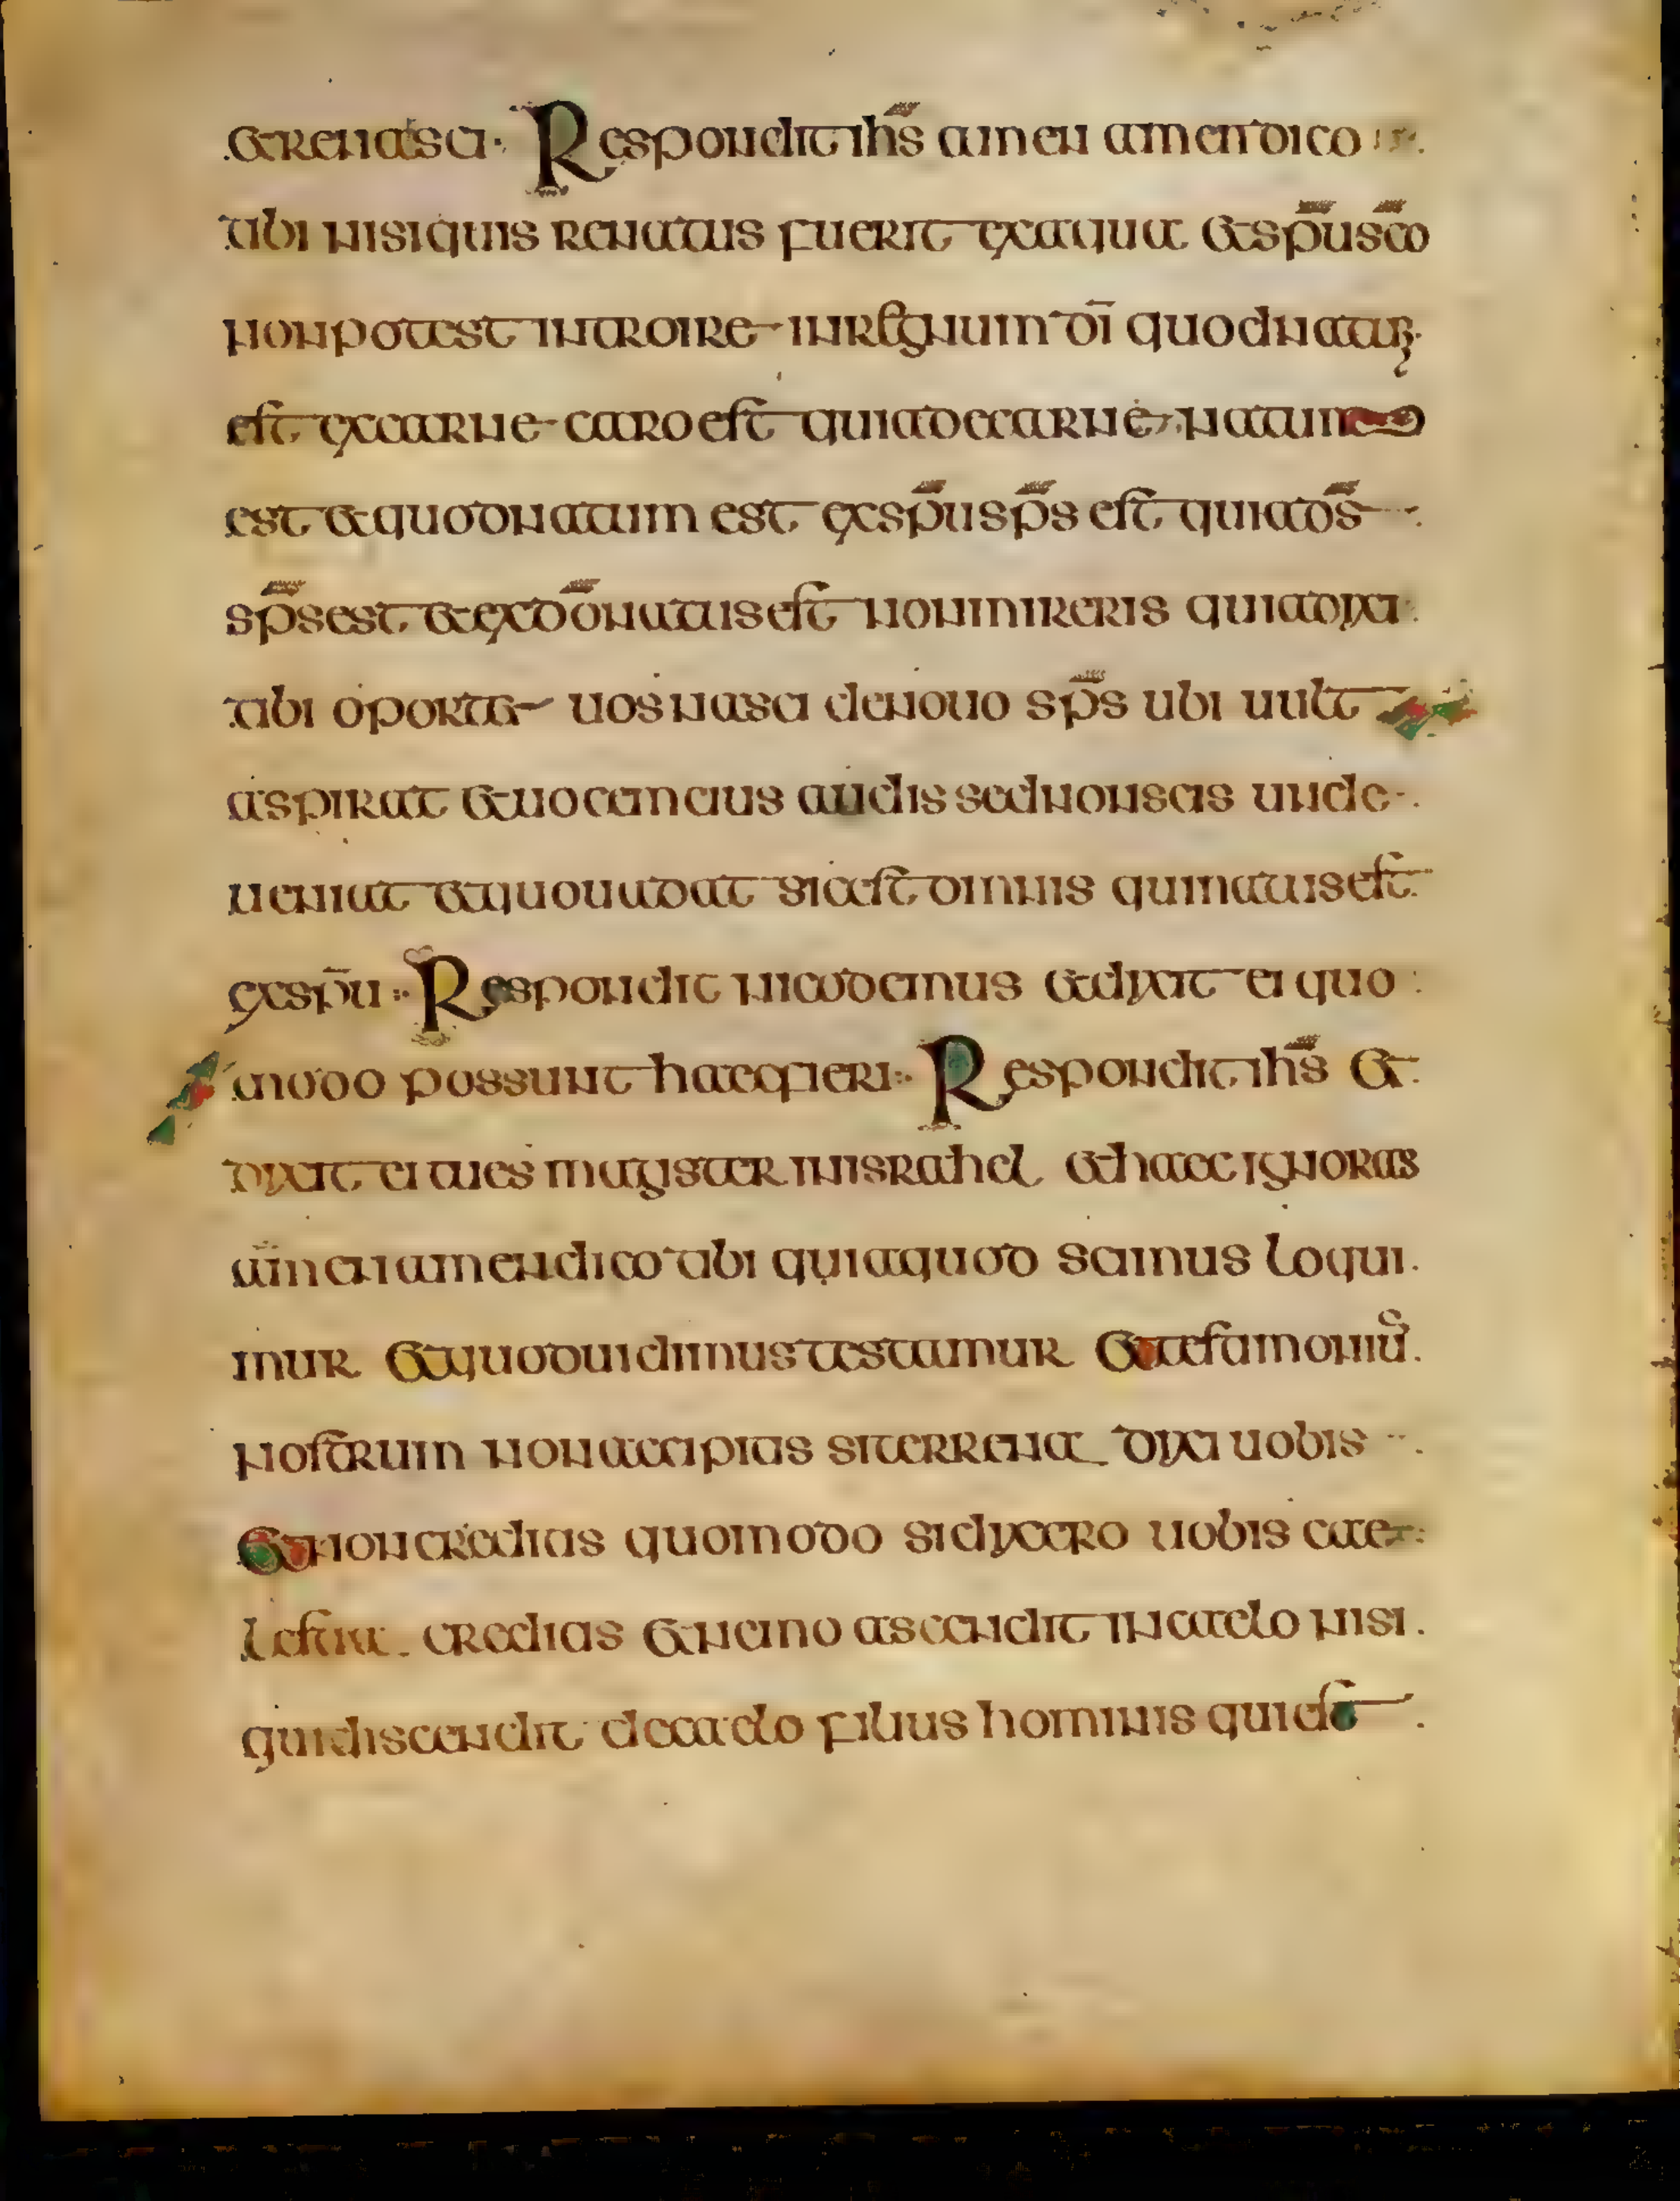 &renasci· Respondit ihs̄ amen amen dico
tibi nisi quis renatus fuerit ex aqua & sp̄u sc̄o
non potest introire in regnum dī quod natum
est ex carne caro est quia de carne natum
est & quod natum est ex sp̄u sp̄s est quia ds̄
sp̄s est & ex dō natus est non mireris quia dixi
tibi oportet uos nasci denouo sp̄s ubi uult
aspirat & uocem eius audis sed non scis unde
ueniat & quo uadat sic est omnis qui natus est
ex sp̄u Respondit nicodemus & dixit ei quo
modo possunt haec fieri Respondit ihs̄ &
dixit ei tu es magister in israhel & haec ignoras
amen amen dico tibi quia quod scimus loqui
mur & quod uidimus testamur & testimoniū
nostrum non accipitis si terrena dixi uobis
& non creditis quomodo si dixero uobis cae
lestia creditis & nemo ascendit in caelo nisi
qui discendit de caelo filius hominis qui est